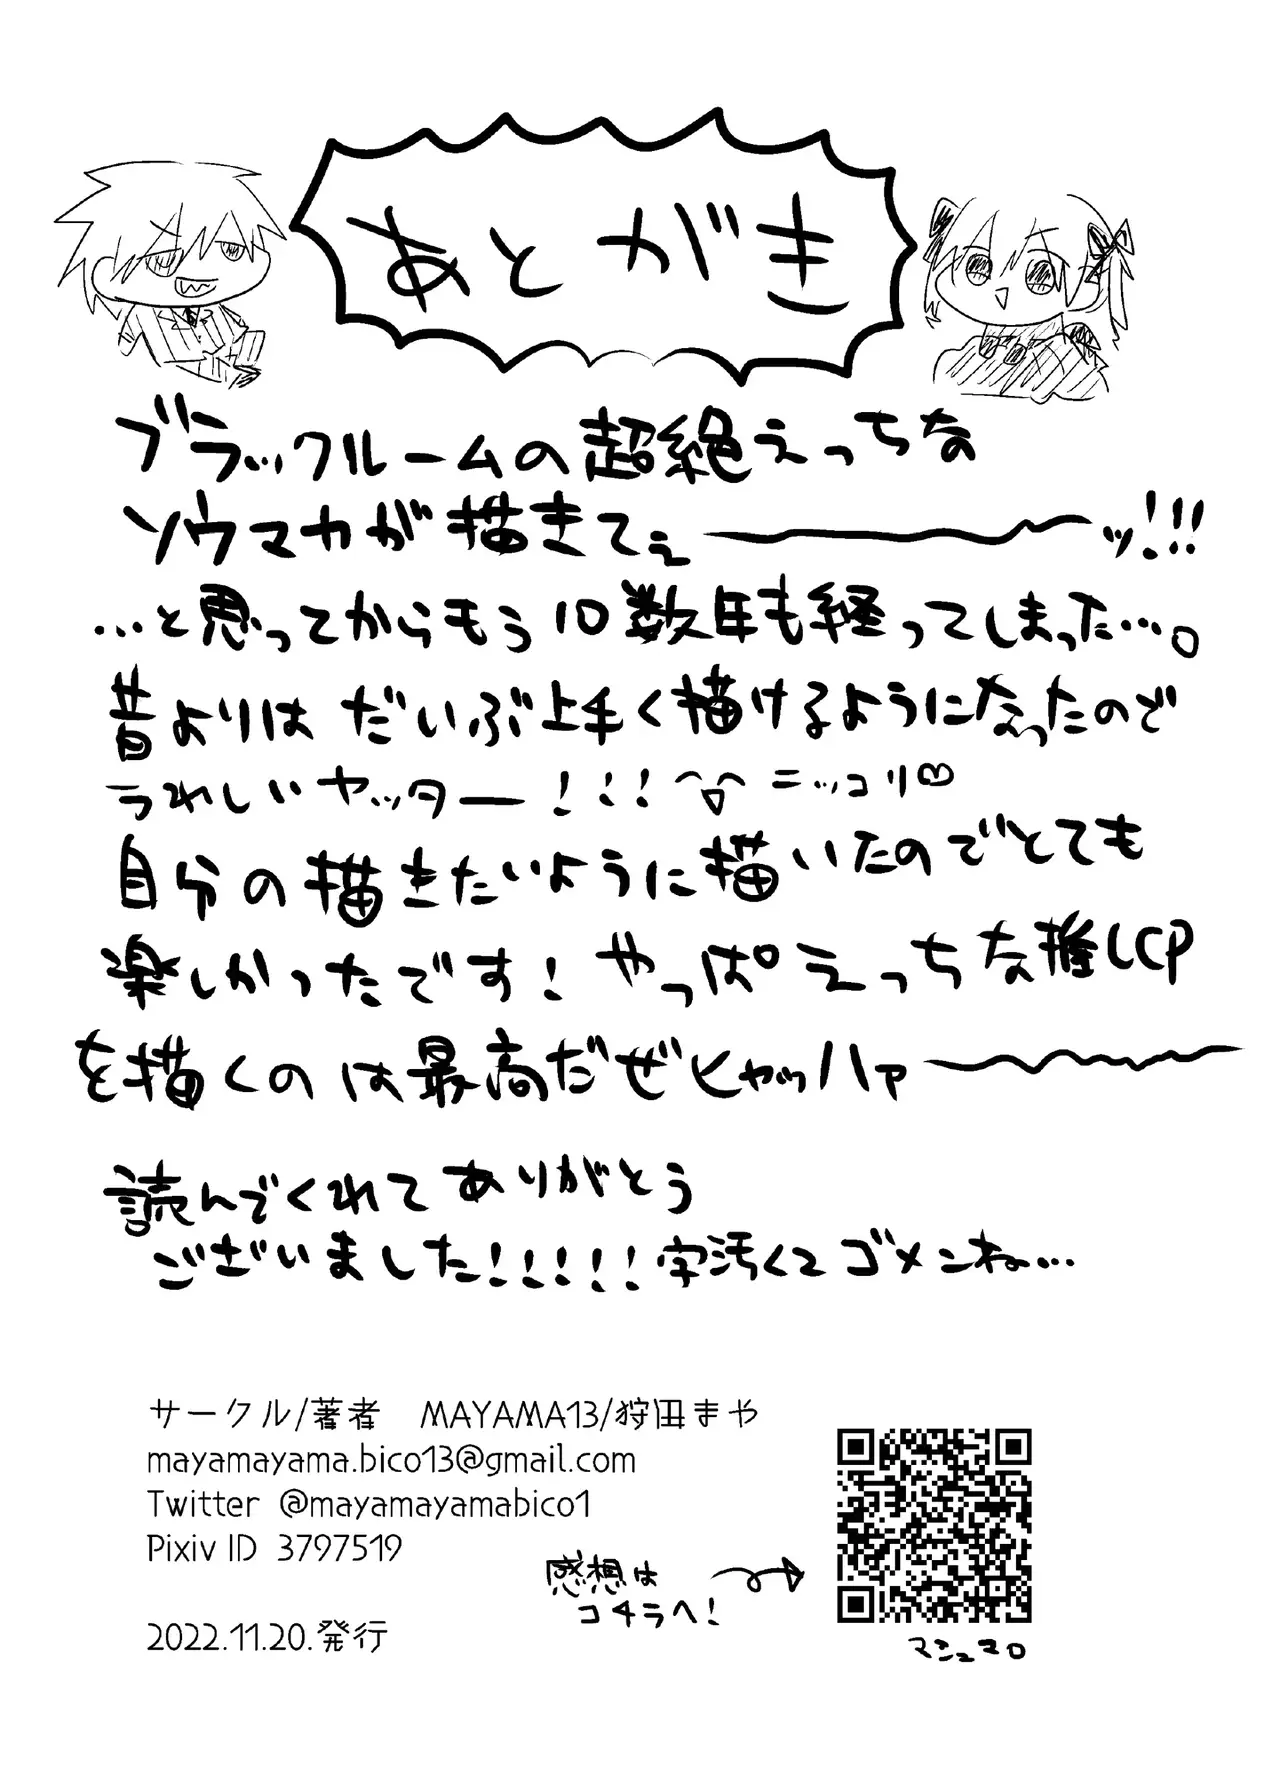 あとがき
ブラックルームの超絶えっちな
ソウマカが描きてぇ――――ッ!!!
…と思ってからもう10数年も経ってしまった…。
昔よりは だいぶ上手く描けるようになったので
うれしいヤッター!!! ニッコリ♡
自分の描きたいように描いたのでとても
楽しかったです! やっぱえっちな推しCP
を描くのは最高だぜヒャッハァ――――
読んでくれてありがとう
ございました!!!!! 字汚くてゴメンね…
サークル/著者 MAYAMA13/狩田まや
mayamayama.bico13@gmail.com
Twitter @mayamayamabico1
Pixiv ID 3797519
感想は
コチラへ!
2022.11.20.発行
マシュマロ